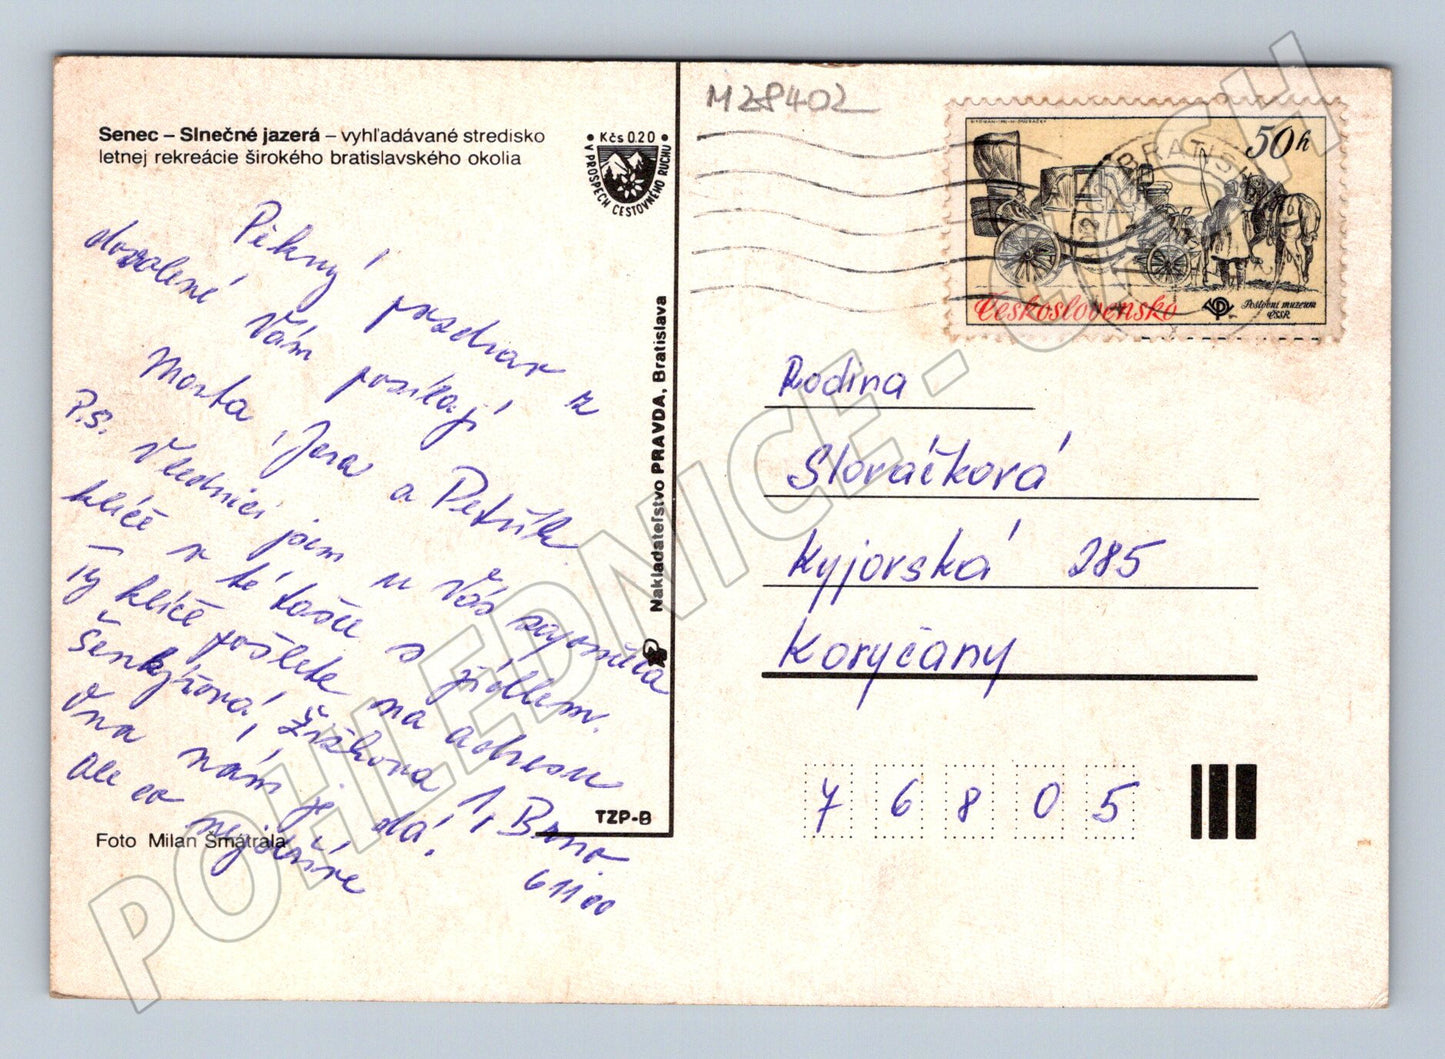 Senec – Slnečné jazerá – vyhľadávané stredisko
letnej rekreácie širokého bratislavského okolia
• Kčs 0.20 •
V PROSPECH CESTOVNÉHO RUCHU
Pěkný pozdrav z
dovolené Vám posílají
Marta, Jara a Petřík
P.S. Vlednici jsem u Vás zapomněla
klíče v té tašce s jídlem.
Ty klíče pošlete na adresu
Šenkýřová, Žižkova 1, Brno
61100
Ona nám je dá!
Ale co nejdříve
Foto Milan Šmátrala
TZP-B
Nakladateľstvo PRAVDA, Bratislava
M28402
BRATISL
50h
Československo
Poštovní muzeum
ČSSR
Rodina
Slováčková
Kyjovská 285
Koryčany
76805
POHLEDNICE - CASH